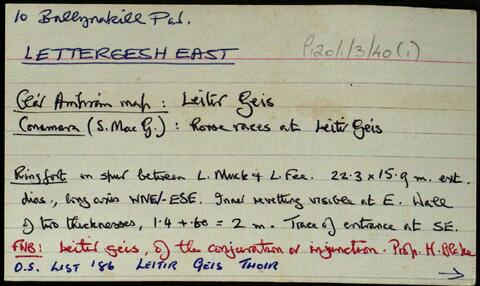 10 Ballynakill Par.
P120/1/3/40(i)
LETTERGESH EAST
Clár Amhrán map : Leitir Geis
Conamara (S. Mac G.) : Horse races at Leitir Geis
Ringfort on spur between L. Muck & L. Fee. 22.3 x 15.9 m. ext.
dias., long axis WNW-ESE. Inner revetting visible at E. Wall
of two thicknesses, 1.4 + .60 = 2 m. Trace of entrance at SE.
FNB: Leitir geis, of the conjuration or injunction. Prop. H. Blake
O.S. LIST '86 LEITIR GEIS THOIR →